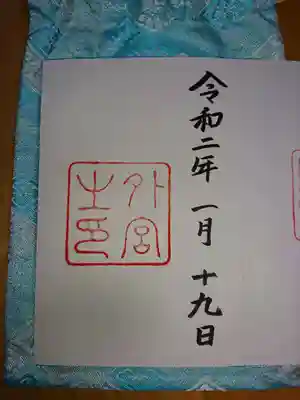 令和二年 一月 十九日
外宮
之印